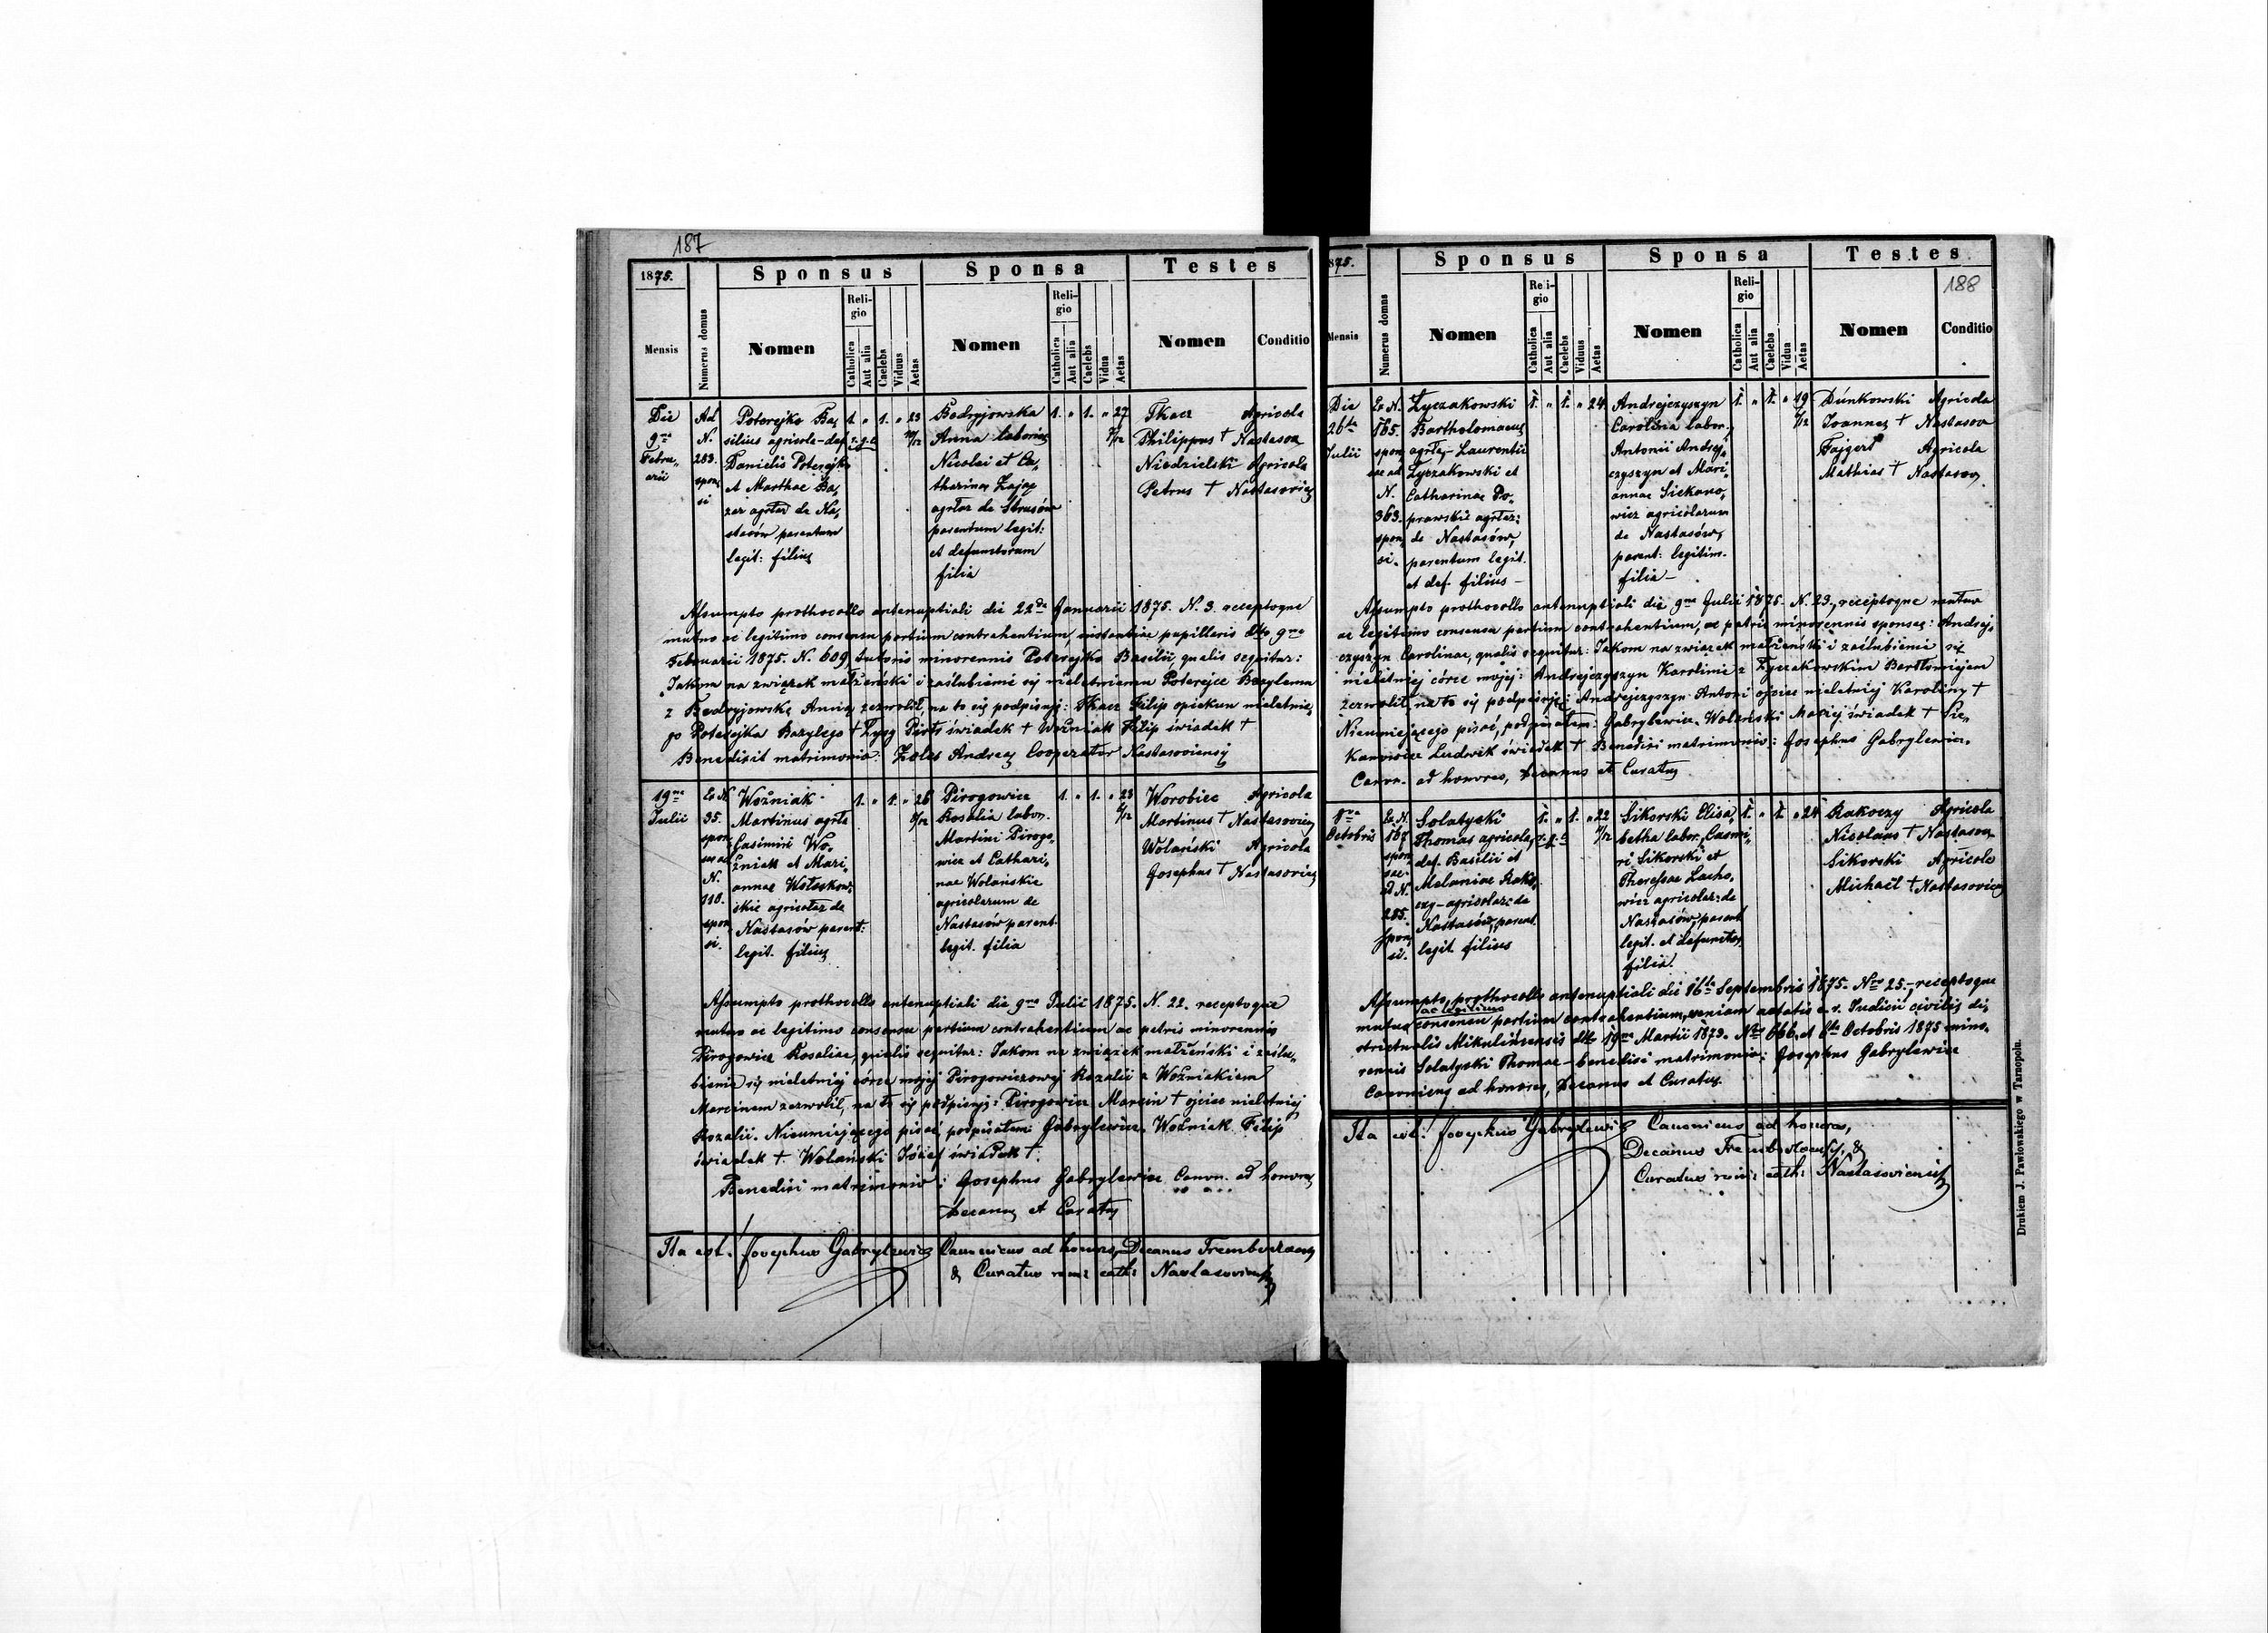 187
1875.
Sponsus
Sponsa
Testes
Mensis
Numerus domus
Nomen
Religio
Catholica
Aut alia
Caelebs
Viduus
Aetas
Nomen
Religio
Catholica
Aut alia
Caelebs
Vidua
Aetas
Nomen
Conditio
Die
9na
Febru„
arii
Ad
N.
283.
spon„
si
Poterejko Ba„
silius agricola – def.
Danielis Poterejko
et Marthae Ba„
zar agrlar de Na„
stasów parentum
legit: filius
1. „ 1. „ 23
r. g. c.
10/12
Bodryjowska
Anna laborius
Nicolai et Ca„
tharinae Zając
agrlar de Strusów
parentum legit:
et defunctorum
filia
1. „ 1. „ 27
7/12
Tkacz Agricola
Philippus † Nastasov
Niedzielski Agricola
Petrus † Nastasovien
Assumpto prothocollo antenuptiali die 22da Januarii 1875. N. 3. receptoque
mutuo ac legitimo consensu partium contrahentium, instantiae pupillaris dto 9na
Februarii 1875. N. 609, tutoris minorennis Poterejko Basilii qualis sequitur:
Jakom na związek małżeński i zaślubienie się nieletniemu Poterejce Bazylemu
z Bodryjowską Anną zezwolił na to się podpisuję: Tkacz Filip opiekun nieletnie„
go Poterejka Bazylego † Zyzg Piotr świadek † Woźniak Filip świadek †
Benedixit matrimonio: Zoles Andreas Cooperator Nastasoviensis
19na
Julii
Ex N.
35.
spon„
sae ad
N.
110.
spon„
si.
Woźniak
Martinus agrla
Casimiri Wo„
źniak et Mari„
annae Wołoskow„
skie agricolar de
Nastasów parent:
legit. filius
1. „ 1. „ 26
8/12
Pirogowicz
Rosalia labor.
Martini Pirogo„
wicz et Cathari„
nae Wolańskie
agricolarum de
Nastasów parent.
legit. filia
1. „ 1. „ 23
6/12
Worobiec Agricola
Martinus † Nastasovien
Wolański Agricola
Josephus † Nastasovien
Assumpto prothocollo antenuptiali die 9na Julii 1875. N. 22. receptoque
mutuo ac legitimo consensu partium contrahentium ac patris minorennis
Pirogowicz Rosaliae, qualis sequitur: Jakom na związek małżeński i zaślu„
bienie się nieletniej córce mojej Pirogowiczowej Rozalii z Woźniakiem
Marcinem zezwolił, na to się podpisuję: Pirogowicz Marcin † ojciec nieletniej
Rozalii. Nieumiejącego pisać, podpisałem: Gabrylewicz. Woźniak Filip
świadek †. Wolański Józef świadek †.
Benedixi matrimonio: Josephus Gabrylewicz Canon. ad honores
Decanus et Curatus
Ita est. Josephus Gabrylewicz Canonicus ad honores, Decanus Trembovlaens
& Curatus rom: cath: Nastasoviensis
1875.
Sponsus
Sponsa
Testes
188
Mensis
Numerus domus
Nomen
Religio
Catholica
Aut alia
Caelebs
Viduus
Aetas
Nomen
Religio
Catholica
Aut alia
Caelebs
Vidua
Aetas
Nomen
Conditio
Die
26ta
Julii
Ex N.
165.
spon„
sae ad
N.
363.
spon„
si.
Łyczakowski
Bartholomaeus
agrla, Laurentii
Łyczakowski et
Catharinae Po„
prawskie agrlar:
de Nastasów,
parentum legit.
et def. filius –
1. „ 1. „ 24
Andrejczyszyn
Carolina labor.
Antonii Andrej„
czyszyn et Mari„
annae Siekano„
wicz agricolarum
de Nastasów,
parent: legitim.
filia –
1. „ 1. „ 19
7/12
Dúnkowski Agricola
Joannes † Nastasov
Fajgert Agricola
Mathias † Nastasov
Assumpto prothocollo antenuptiali die 9na Julii 1875. N. 23., receptoque mutuo
ac legitimo consensu partium contrahentium, ac patris minorennis sponsae: Andrej„
czyszyn Carolinae, qualis sequitur: Jakom na związek małżeński i zaślubienie się
nieletniej córce mojej: Andrejczyszyn Karolinie z Łyczakowskim Bartłomiejem
zezwolił, na to się podpisuję: Andrejczyszyn Antoni ojciec nieletniej Karoliny †
Nieumiejącego pisać, podpisałem: Gabrylewicz. Wolański Maciej świadek † Sie„
kanowicz Ludwik świadek † Benedixi matrimonio: Josephus Gabrylewicz.
Canon. ad honores, Decanus et Curatus
Octobris
Ex N.
167
spon„
sae
ad N.
285.
spon„
si.
Solatyski
Thomas agricola,
def. Basilii et
Melaniae Rako„
czy – agricolar: de
Nastasów, parent
legit. filius
1. „ 1. „ 22
r. g. c.
7/12
Sikorski Elisa„
betha labor., Casmi„
ri Sikorski et
Theressae Lacho„
wicz agricolar: de
Nastasów, parent
legit. et defunctor
filia.
1. „ 1. „ 24
Rakoczy Agricola
Nicolaus † Nastasov
Sikorski Agricola
Michaël † Nastasovien
Assumpto prothocollo antenuptiali die 16ta Septembris 1875. Nro 25. – receptoque
mutuo ac legitimo consensu partium contrahentium, veniam aetatis c. r. Judicii civilis di„
strictualis Mikulińcensis dto 19na Martii 1873. Nro 666. et Octobris 1875 mino„
rennis Solatyski Thomae – benedixi matrimonio: Josephus Gabrylewicz
Canonicus ad honores, Decanus et Curatus.
Ita est: Josephus Gabrylewicz Canonicus ad honores,
Decanus Trembovlaensis, &
Curatus rom: cath: Nastasoviensis
Drukiem J. Pawłowskiego w Tarnopolu.